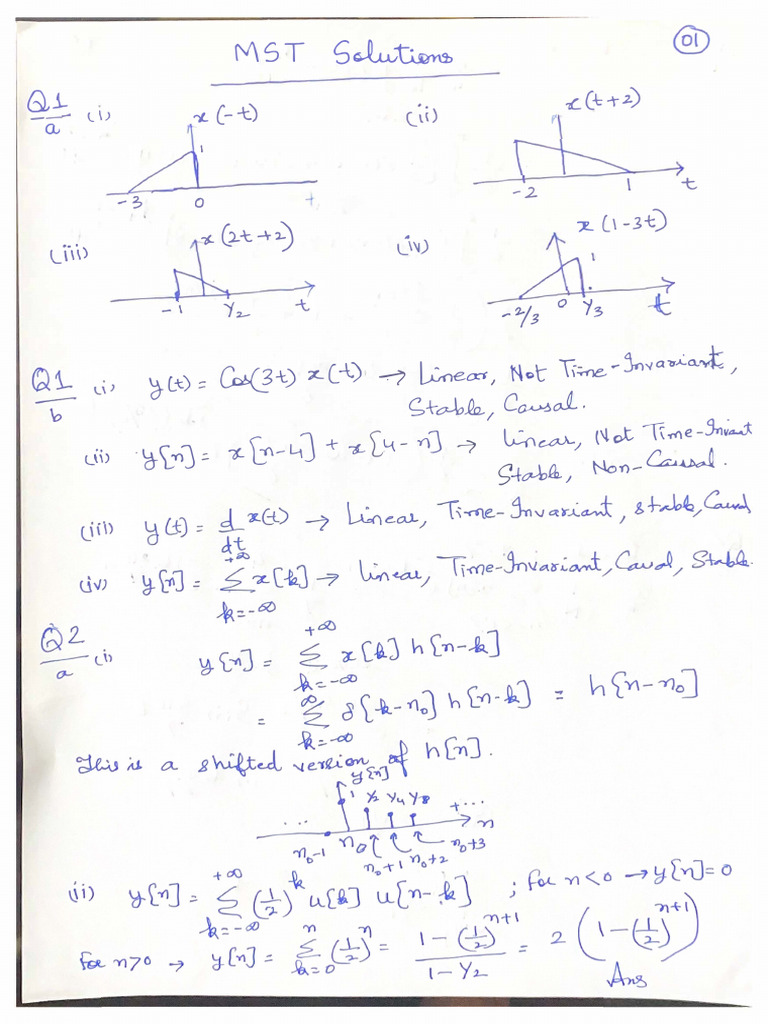 01
MST Solutions
Q1/a (i) x(-t) (ii) x(t+2)
1
-3 0 t -2 1 t
(iii) x(2t+2) (iv) x(1-3t)
1
-1 1/2 t -2/3 0 1/3 t
Q1/b (i) y(t) = Cos(3t) x(t) → Linear, Not Time-Invariant,
Stable, Causal.
(ii) y[n] = x[n-4] + x[4-n] → linear, Not Time-Invaint
Stable, Non-Causal.
(iii) y(t) = d/dt x(t) → Linear, Time-Invariant, stable, Causal
(iv) y[n] = +∞ Σ k=-∞ x[k] → linear, Time-Invariant, Causal, Stable.
Q2/a (i) y[n] = +∞ Σ k=-∞ x[k] h[n-k]
= ∞ Σ k=-∞ δ[k-n₀] h[n-k] = h[n-n₀]
This is a shifted version of h[n].
y[n]
1 1/2 1/4 1/8
... +... n
n₀-1 n₀ n₀+1 n₀+2 n₀+3
(ii) y[n] = +∞ Σ k=-∞ (1/2)^k u[k] u[n-k] ; for n<0 → y[n]=0
for n>0 → y[n] = n Σ k=0 (1/2)^n = (1-(1/2)^(n+1))/(1-1/2) = 2(1-(1/2)^(n+1))
Ans